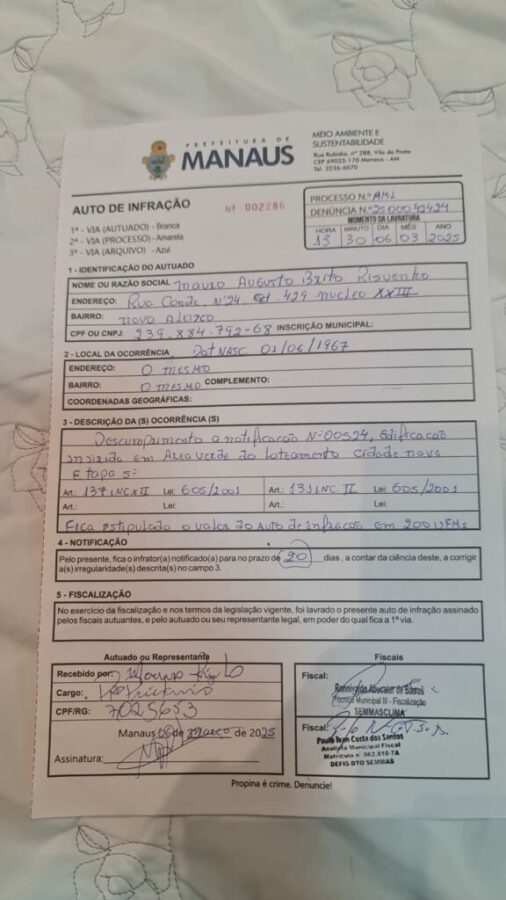 PREFEITURA DE
MANAUS
MEIO AMBIENTE E
SUSTENTABILIDADE
Rua Rubídio, nº 288, Vila da Prata
CEP 69033-170 Manaus - AM
Tel: 3236-6070
AUTO DE INFRAÇÃO
Nº 002286
1ª - VIA (AUTUADO) - Branca
2ª - VIA (PROCESSO) - Amarela
3ª - VIA (ARQUIVO) - Azul
PROCESSO N.º
DENÚNCIA N.º
MOMENTO DA LAVRATURA
HORA MINUTO DIA MÊS ANO
13 30 06 03 2025
1 - IDENTIFICAÇÃO DO AUTUADO
NOME OU RAZÃO SOCIAL Mauro Augusto Brito
ENDEREÇO: Rua Conde, Nº24, 429 Nucleo XXIII
BAIRRO: Novo Aleixo
CPF OU CNPJ: 239.884.792-68 INSCRIÇÃO MUNICIPAL:
2 - LOCAL DA OCORRÊNCIA Dat Nasc 01/06/1967
ENDEREÇO: O MESMO
BAIRRO: O MESMO COMPLEMENTO:
COORDENADAS GEOGRÁFICAS:
3 - DESCRIÇÃO DA (S) OCORRÊNCIA (S)
Descumpumento a notificacao Nº 00524, Edificacao
Inserida em Area verde do Loteamento Cidade nova
Etapa 5.
Art.: 137 INC XII Lei: 605/2001 Art.: 131 INC. II Lei: 605/2001
Art.: Lei: Art.: Lei:
Fica estipulado o valor do Auto de Infracao em 200 UFMs
4 - NOTIFICAÇÃO
Pelo presente, fica o infrator(a) notificado(a) para no prazo de 20 dias, a contar da ciência deste, a corrigir
a(s) irregularidade(s) descrita(s) no campo 3.
5 - FISCALIZAÇÃO
No exercício da fiscalização e nos termos da legislação vigente, foi lavrado o presente auto de infração assinado
pelos fiscais autuantes, e pelo autuado ou seu representante legal, em poder do qual fica a 1ª via.
Autuado ou Representante
Recebido por:
Cargo:
CPF/RG: 7025653
Manaus 06 de março de 2025
Assinatura:
Fiscais
Fiscal:
Ronnivaldo Abecater de Barros
Técnico Municipal III - Fiscalização
SEMMASCLIMA
Fiscal:
Paulo Ivan Costa dos Santos
Analista Municipal Fiscal
Matrícula nº 062.810-7A
DEFIS DTO SEMMAS
Propina é crime. Denuncie!